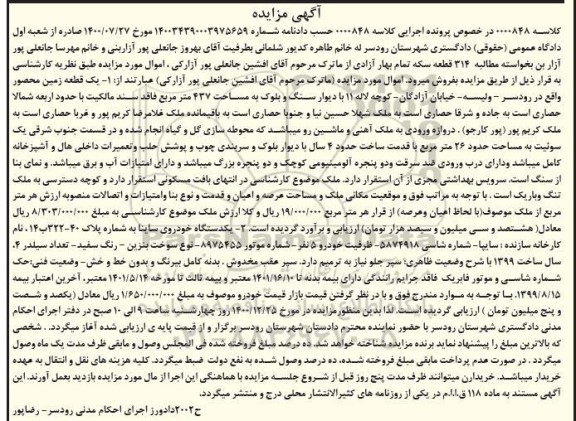 آگهی مزایده
کلاسه ۰۰۰۰۸۴۸ در خصوص پرونده اجرایی کلاسه ۰۰۰۰۸۴۸ حسب دادنامه شماره ۱۴۰۰۳۴۳۹۰۰۰۳۹۷۵۶۵۹ مورخ ۱۴۰۰/۰۷/۲۷ صادره از شعبه اول
دادگاه عمومی (حقوقی) دادگستری شهرستان رودسر له خانم طاهره کدیور شلمانی بطرفیت آقای بهروز جانعلی پور آزارینی و خانم مهرسا جانعلی پور
آزار بن بخواسته مطالبه ۳۱۴ قطعه سکه تمام بهار آزادی از ماترک مرحوم آقای افشین جانعلی پور آزارکی ، اموال مورد مزایده طبق نظریه کارشناسی
به قرار ذیل از طریق مزایده بفروش میرود. اموال مورد مزایده (ماترک مرحوم آقای افشین جانعلی پور آزارکی) عبارتند از: ۱- یک قطعه زمین محصور
واقع در رودسر - ولیسه- خیابان آزادگان- کوچه لاله ۱۱ با دیوار سنگ و بلوک به مساحت ۴۳۷ متر مربع فاقد سند مالکیت با حدود اربعه شمالا
حصاری است به جاده و شرقا حصاری است به ملک شهلا حسین نیا و جنوبا حصاری است به باقیمانده ملک غلامرضا کریم پور و غربا حصاری است به
ملک کریم پور (پور کارجو) . دروازه ورودی به ملک آهنی و ماشین رو میباشد که محوطه سازی گل و گیاه انجام شده و در قسمت جنوب شرقی یک
سوئیت به مساحت حدود ۲۶ متر مربع با قدمت ساخت حدود ۴ سال با دیوار بلوک و سربندی چوب و پوشش حلب وتعمیرات داخلی هال و آشپزخانه
کامل میباشد ودارای درب ورودی ضد سرقت ودو پنجره آلومینیومی کوچک و دو پنجره بزرگ میباشد و دارای امتیازات آب و برق میباشد. و نمای بنا
از سنگ است. سرویس بهداشتی مجزی از آن استقرار دارد. ملک موضوع کارشناسی در انتهای بافت مسکونی استقرار دارد و کوچه دسترسی به ملک
تنگ وباریک است . با توجه به مراتب فوق و موقعیت مکانی ملک و مساحت عرصه و اعیان و قدمت و نوع بنا وامتیازات و اتصالات منصوبه ارزش هر متر
مربع از ملک موصوف(با لحاظ اعیان وعرصه) از قرار هر متر مربع ۱۹/۰۰۰/۰۰۰ ریال و کلا ارزش ملک موضوع کارشناسی به مبلغ ۸/۳۰۳/۰۰۰/۰۰۰ ریال
معادل (هشتصد و سی میلیون و سیصد هزار تومان) ارزیابی و برآورد گردیده است. ۲- یکدستگاه خودروی سایتا به شماره پلاک ۴۰-۳۲۲ب۱۴ ، نام
کارخانه سازنده : سایپا- شماره شاسی ۵۸۷۴۹۱۸- ظرفیت خودرو ۵ نفر- شماره موتور ۸۹۷۵۴۵۵- نوع سوخت بنزین - رنگ سفید- تعداد سیلندر ۴،
سال ساخت ۱۳۹۹ با شرح وضعیت ظاهری: سپر جلو نیاز به ترمیم دارد. سپر عقب مخدوش . بدنه کامل بیرنگ و بدون خط و خش- وضعیت فنی:حک
شماره شاسی و موتور فابریک فاقد جرایم رانندگی دارای بیمه بدنه تا ۱۴۰۱/۱۶/۱۰ معتبر و بیمه ثالث تا مورخه ۱۴۰۱/۵/۱۴ معتبر، آخرین اعتبار بیمه
۱۳۹۹/۸/۱۵. بـا توجه به موارد مندرج فوق و با در نظر گرفتن قیمت بازار قیمت خودرو موصوف به مبلغ ۱/۶۵۰/۰۰۰/۰۰۰ ریال معادل (یکصد و شصت
و پنج میلیون تومان ) ارزیابی گردیده است. لذا بدین منظورمزایده در روز ۱۴۰۰/۱۲/۲۵ روز چهارشنبه ساعت ۹ الی ۱۰ صبح در دفتر اجرای احکام
مدنی دادگستری شهرستان رودسر با حضور نماینده محترم دادستان شهرستان رودسر برگزار و از قیمت پایه ی ارزیابی شده آغاز میگردد. . شخصی
که بالاترین مبلغ را پیشنهاد نماید برنده مزایده شناخته خواهد شد. ده درصد مبلغ فروخته شده فی المجلس وصول و مابقی ظرف مدت یک ماه وصول
میگردد . در صورت عدم پرداخت مابقی مبلغ فروخته شـده، ده درصد وصول شـده به نفع دولت ضبط میگردد. کلیه هزینه های نقل و انتقال به عهده
خریدار میباشـد. خریداران میتوانند ظرف مدت پنج روز قبل از شـروع جلسـه مزایده با هماهنگی این اجرا از مال مورد مزایده بازدید بعمل آورند. این
آگهی مستند به ماده ۱۱۸ ق.ا.ا.م در یکی از روزنامه های کثیرالانتشار محلی درج و منتشر میگردد.
ح۲۰۰۲ دادورز اجرای احکام مدنی رودسر- رضاپور